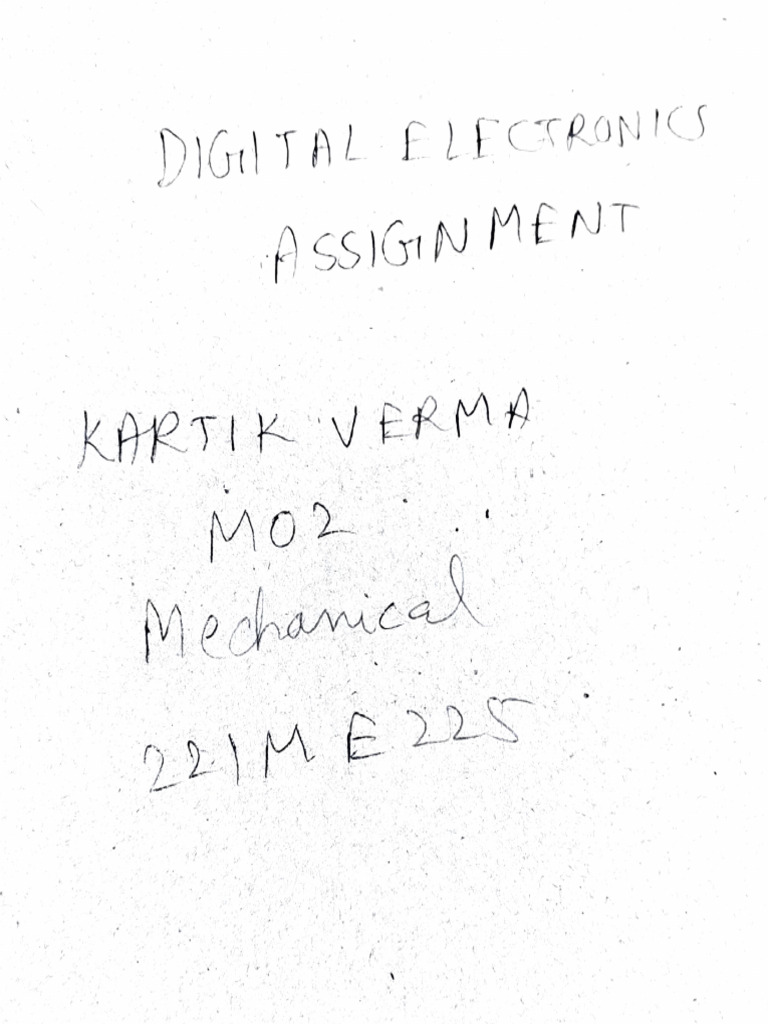 DIGITAL ELECTRONICS
ASSIGNMENT
KARTIK VERMA
M02
Mechanical
221ME225